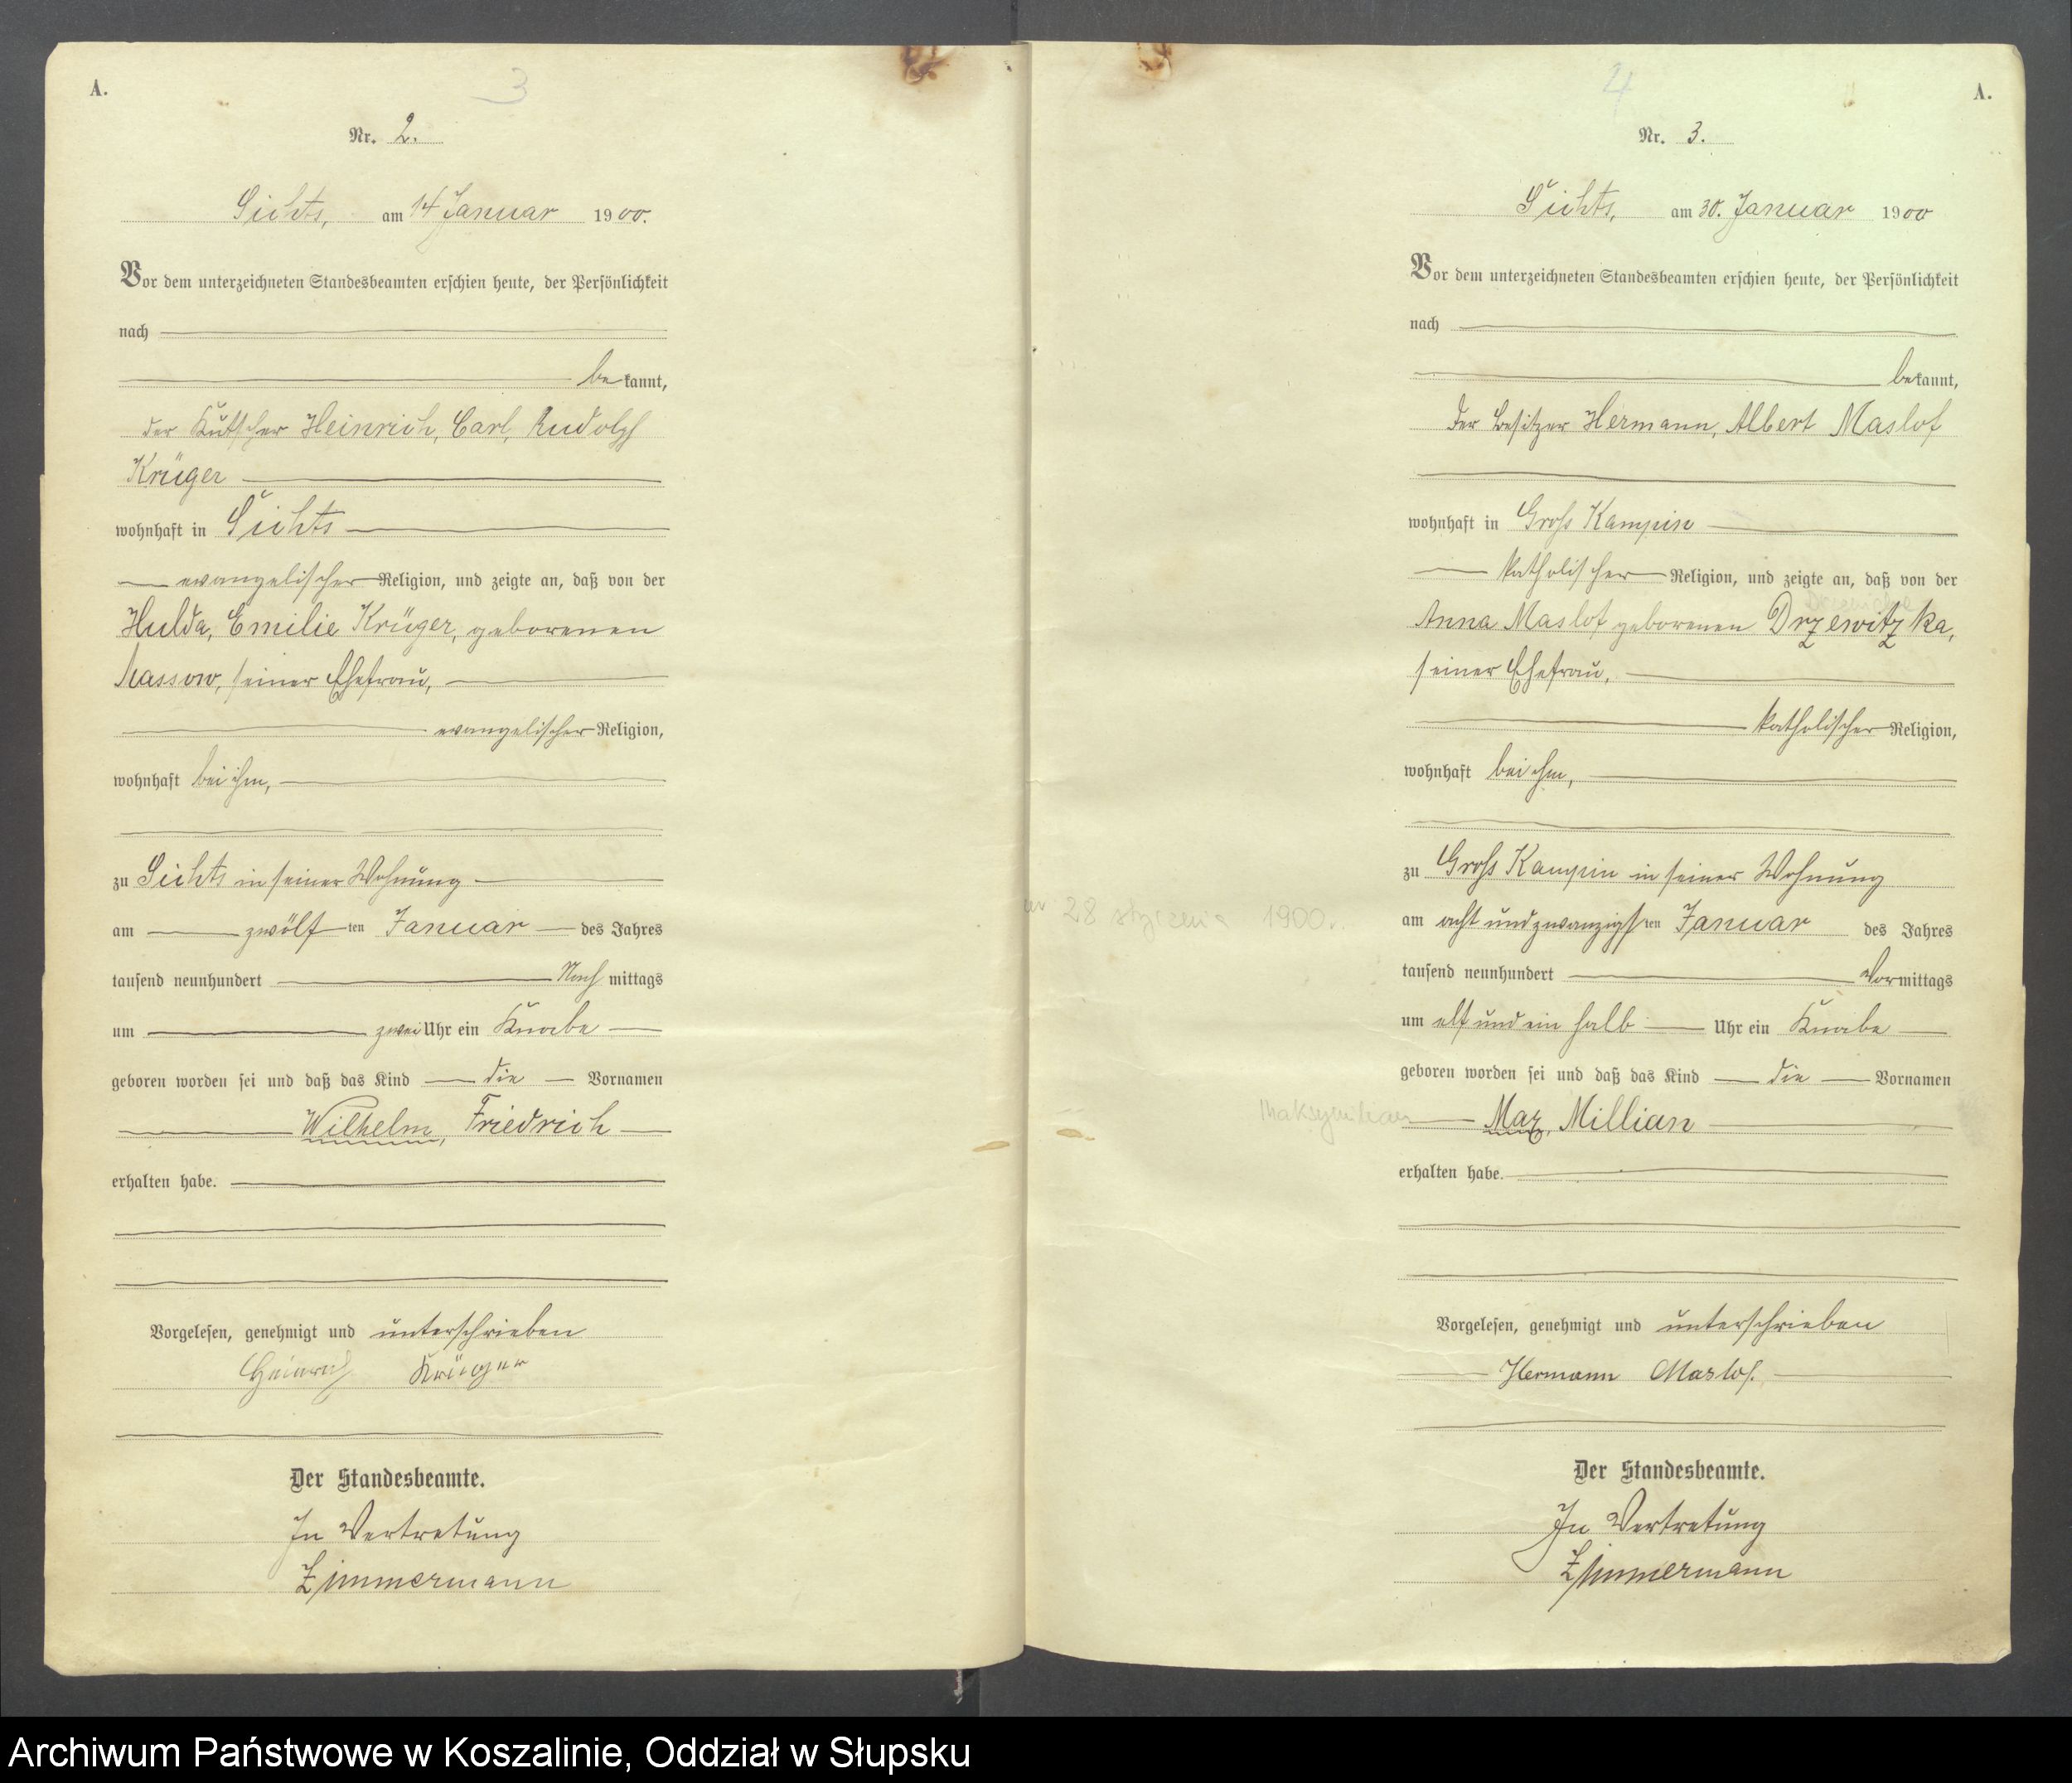 A.
3
Nr. 2.
Sichts, am 14 Januar 1900.
Vor dem unterzeichneten Standesbeamten erschien heute, der Persönlichkeit
nach
bekannt,
der Kutscher Heinrich, Carl, Rudolph
Krüger
wohnhaft in Sichts
evangelischer Religion, und zeigte an, daß von der
Hulda, Emilie Krüger, geborenen
Massow, seiner Ehefrau,
evangelischer Religion,
wohnhaft bei ihm,
zu Sichts in seiner Wohnung
am zwölf ten Januar des Jahres
tausend neunhundert Nach mittags
um zwei Uhr ein Knabe
geboren worden sei und daß das Kind die Vornamen
Wilhelm, Friedrich
erhalten habe.
Vorgelesen, genehmigt und unterschrieben
Heinrich Krüger
Der Standesbeamte.
In Vertretung
Zimmermann
4
A.
Nr. 3.
Sichts, am 30. Januar 1900
Vor dem unterzeichneten Standesbeamten erschien heute, der Persönlichkeit
nach
bekannt,
der Besitzer Hermann, Albert Maslof
wohnhaft in Gross Kampin
katholischer Religion, und zeigte an, daß von der
Anna Maslof geborenen Drzewitzka,
seiner Ehefrau,
katholischer Religion,
wohnhaft bei ihm,
zu Gross Kampin in seiner Wohnung
28 stycznia 1900.
am acht und zwanzigsten Januar des Jahres
tausend neunhundert Vormittags
um elf und ein halb Uhr ein Knabe
geboren worden sei und daß das Kind die Vornamen
Maksymilian
Max, Millian
erhalten habe.
Vorgelesen, genehmigt und unterschrieben
Hermann Maslof.
Der Standesbeamte.
In Vertretung
Zimmermann
Archiwum Państwowe w Koszalinie, Oddział w Słupsku